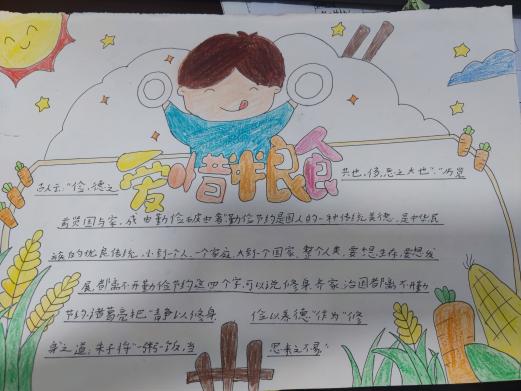 爱惜粮食
古人云:"俭,德之
共也,侈,恶之大也","历览
前贤国与家,成由勤俭破由奢"勤俭节约是国人的一种传统美德,是中华民
族的优良传统,小到一个人,一个家庭,大到一个国家、整个人类,要想生存,要想发
展,都离不开勤俭节约这四个字,可以说修身、齐家、治国都离不开勤
节约,诸葛亮把"静以修身 俭以养德"作为"修
身之道;朱子将"一粥一饭,当 思来之不易"